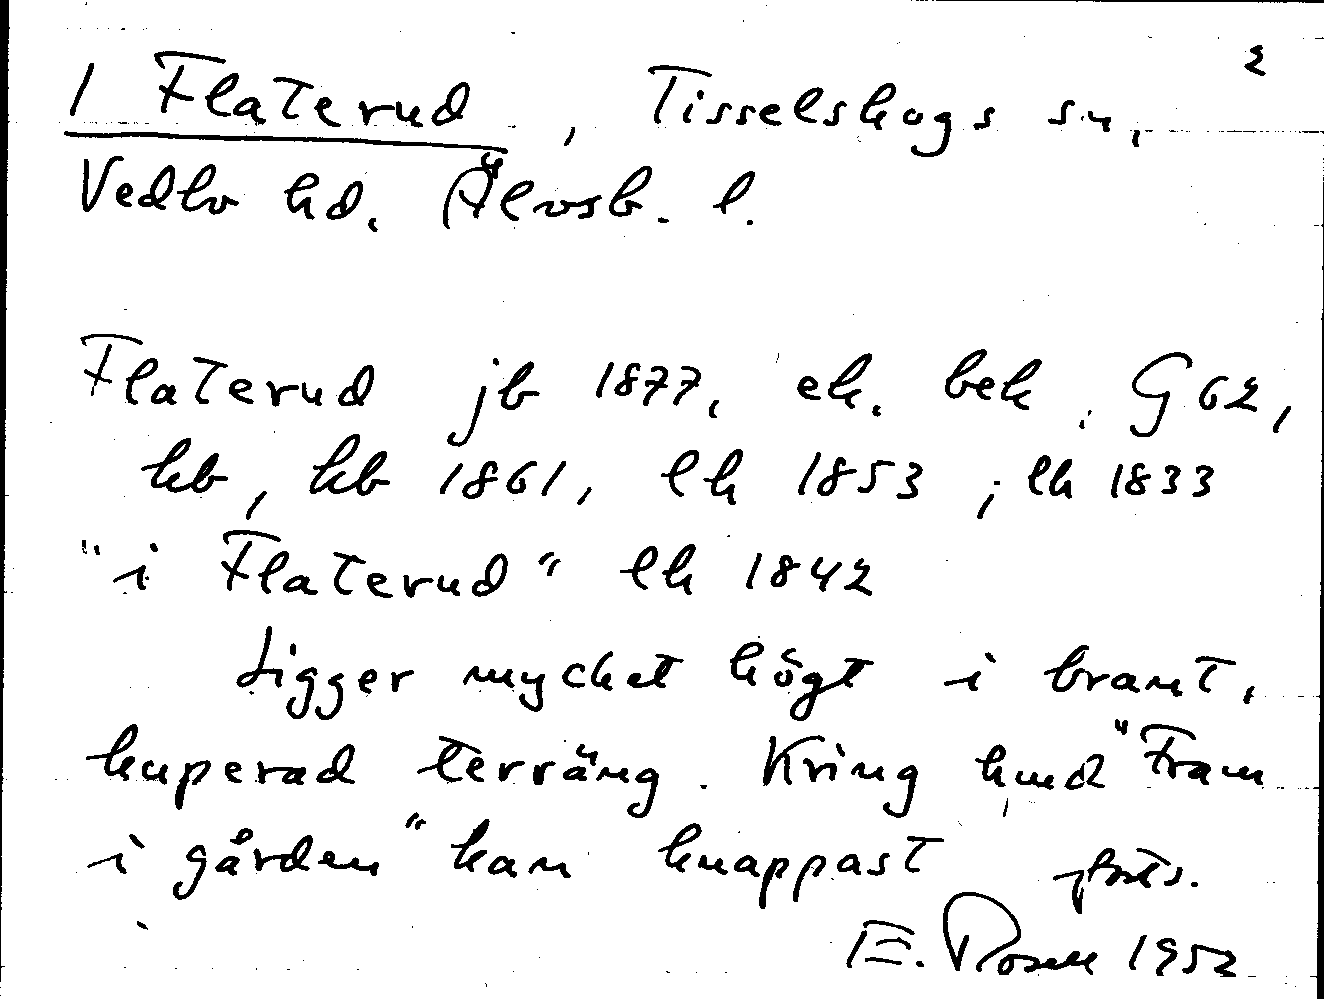 2
1 Flaterud, Tisselskogs sn,
Vedbo hd. Älvsb. l.
Flaterud jb 1877, ek. bek. G 62,
kb, hb 1861, lh 1853, lh 1833
"i Flaterud" lh 1842
Ligger mycket högt i brant,
kuperad terräng. Kring hmd "Fram
i gården" kan knappast forts.
E. Rosell 1952